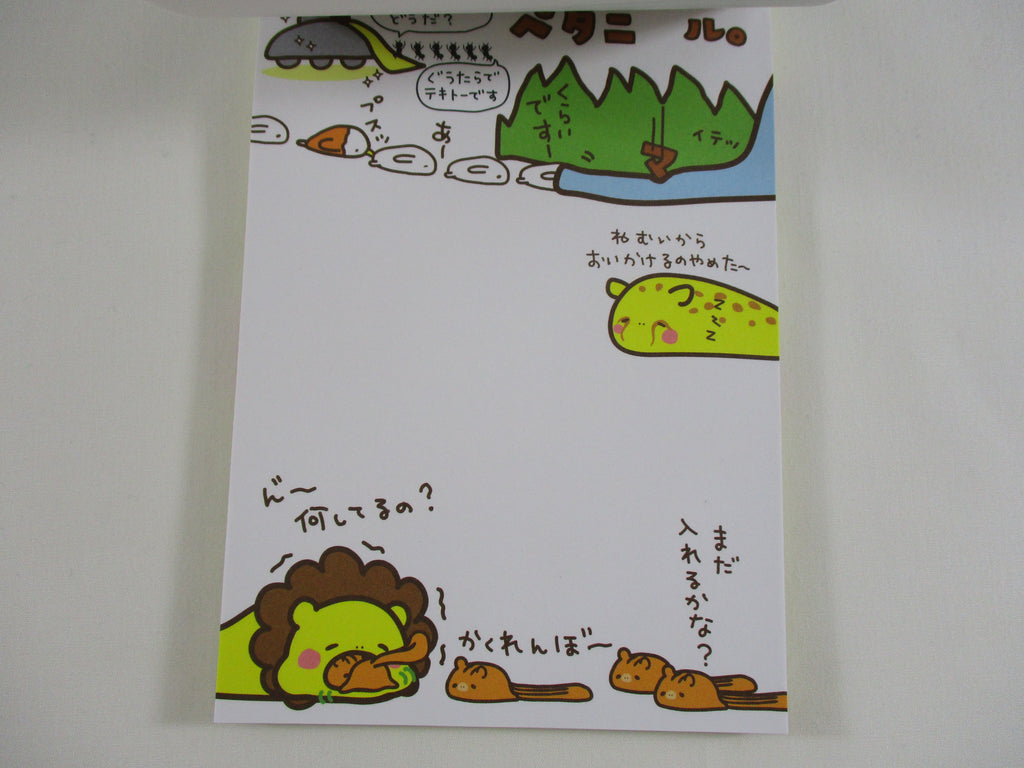 どうだ?
ペタニ ル。
ぐうたらで
テキトーです
プスッ
あー
くらい
でずー
イデッ
ねむいから
おいかけるのやめた〜
zzz
ん〜
何してるの?
まだ
入れるかな?
かくれんぼ〜